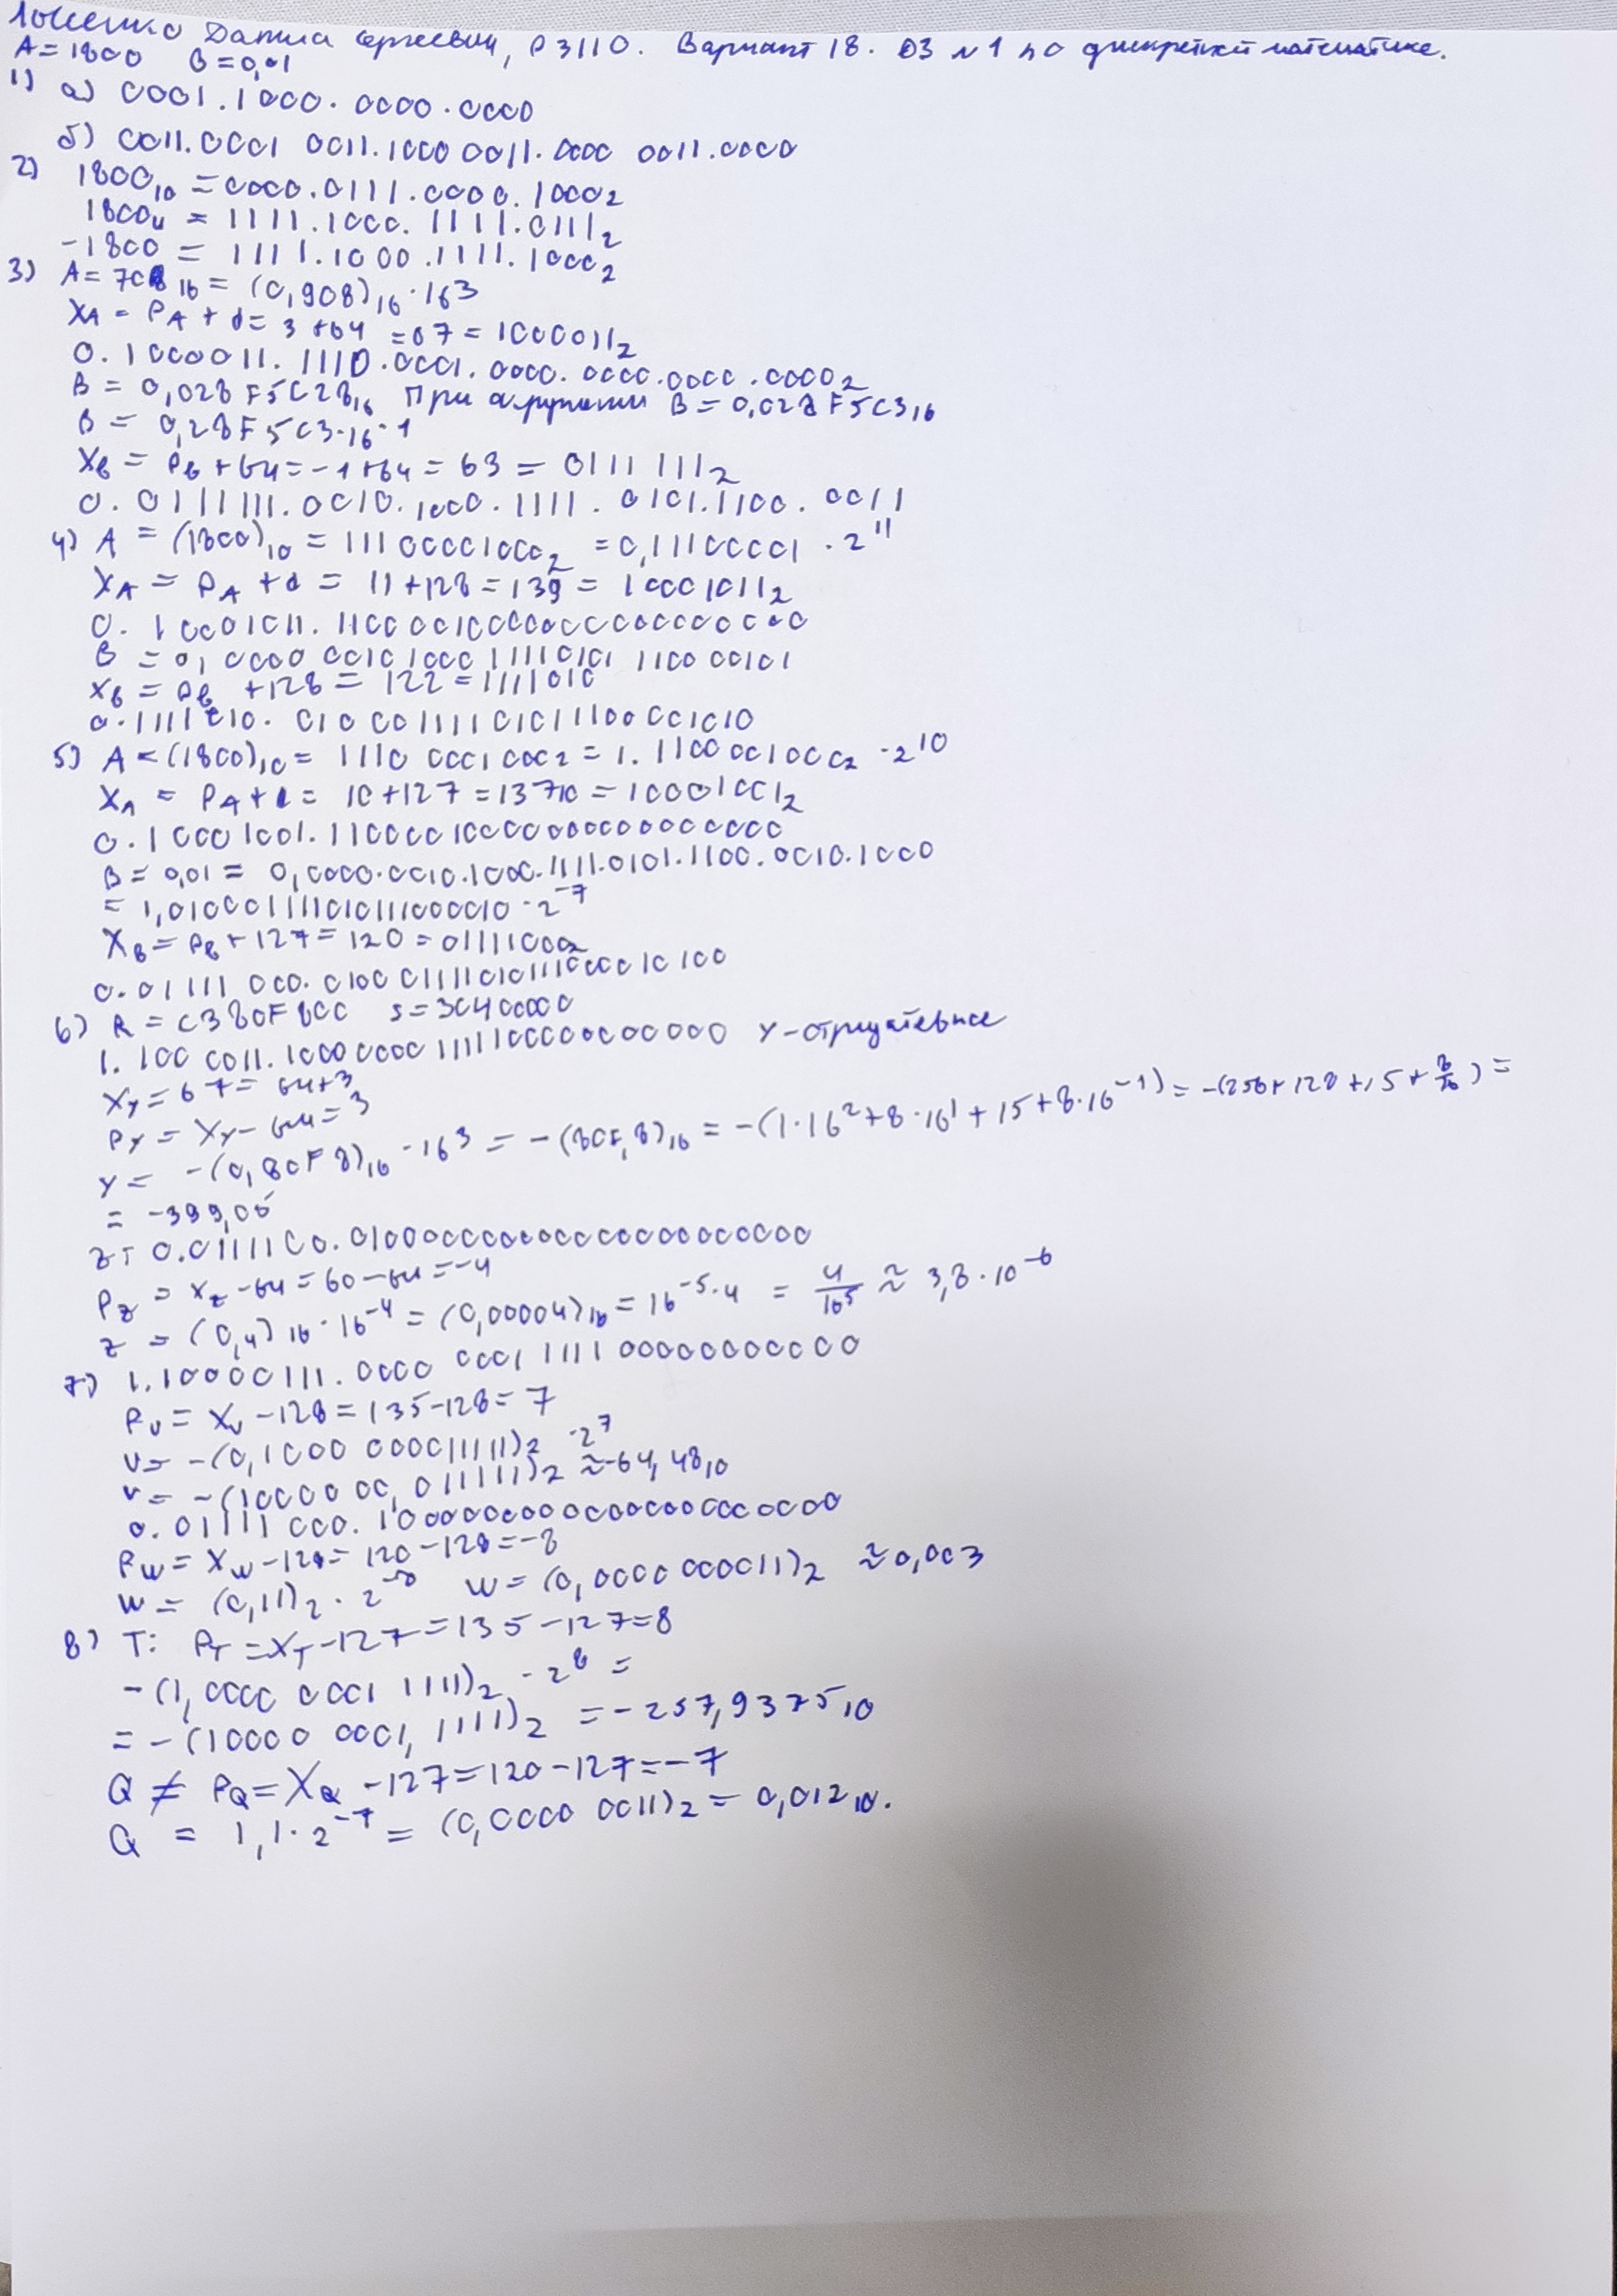 Данила Сергеевич, P3110. Вариант 18. ДЗ №1 по дискретной математике.
A=1800 B=0,01
1) а) 0001.1000.0000.0000
б) 0011.0001 0011.1000 0011.0000 0011.0000
2) 1800₁₀ = 0000.0111.0000.1000₂
1800 = 1111.1000.1111.0111₂
-1800 = 1111.1000.1111.1000₂
3) A = 708₁₆ = (0,908)₁₆·16³
X_A = P_A + d = 3+64 = 67 = 1000011₂
0.1000011.1110.0001.0000.0000.0000.0000₂
B = 0,028F5C28₁₆ При округлении B = 0,028F5C3₁₆
B = 0,28F5C3·16⁻¹
X_B = P_B+64 = -1+64 = 63 = 0111111₂
0.0111111.0010.1000.1111.0101.1100.0011
4) A = (1800)₁₀ = 11100001000₂ = 0,11100001·2¹¹
X_A = P_A + d = 11+128 = 139 = 10001011₂
0.10001011.1100001000000000000000
B = 0,0000 0010 1000 1111 0101 1100 00101
X_B = P_B +128 = 122 = 1111010
0.1111010. 010 00 1111 0101 1100 001010
5) A = (1800)₁₀ = 1110 0001 000₂ = 1.1100001000₂ ·2¹⁰
X_A = P_A + d = 10+127 = 137₁₀ = 10001001₂
0.10001001.11000010000000000000000
B = 0,01 = 0,0000.0010.1000.1111.0101.1100.0010.1000
= 1,010001111010111000010·2⁻⁷
X_B = P_B+127 = 120 = 01111000₂
0.01111000.01000111101011100001 0100
6) R = C380F800 S = 3C400000
1.100 0011.1000 0000 1111 1000 0000 0000 Y-отрицательное
X_Y = 67 = 64+3
P_Y = X_Y - 64 = 3
Y = -(0,80F8)₁₆·16³ = -(80F,8)₁₆ = -(1·16²+8·16¹+15+8·16⁻¹) = -(256+128+15+8/16) =
= -399,05
Z: 0.0111100.010000000000000000000000
P_Z = X_Z - 64 = 60-64 = -4
Z = (0,4)₁₆·16⁻⁴ = (0,00004)₁₆ = 16⁻⁵·4 = 4/16⁵ ≈ 3,8·10⁻⁶
7) 1.10000111.0000 0001 1111 00000000000
P_V = X_V - 128 = 135-128 = 7
V = -(0,1000 000011111)₂ ·2⁷
V = -(1000000,011111)₂ ≈ -64,48₁₀
0.01111000.10000000000000000000000
P_W = X_W - 128 = 120-128 = -8
W = (0,11)₂·2⁻⁸ W = (0,0000 000011)₂ ≈ 0,003
8) T: P_T = X_T - 127 = 135-127 = 8
-(1,0000 0001 1111)₂ ·2⁸ =
= -(10000 0001,1111)₂ = -257,9375₁₀
Q ≠ P_Q = X_Q - 127 = 120-127 = -7
Q = 1,1·2⁻⁷ = (0,0000 0011)₂ = 0,012₁₀.